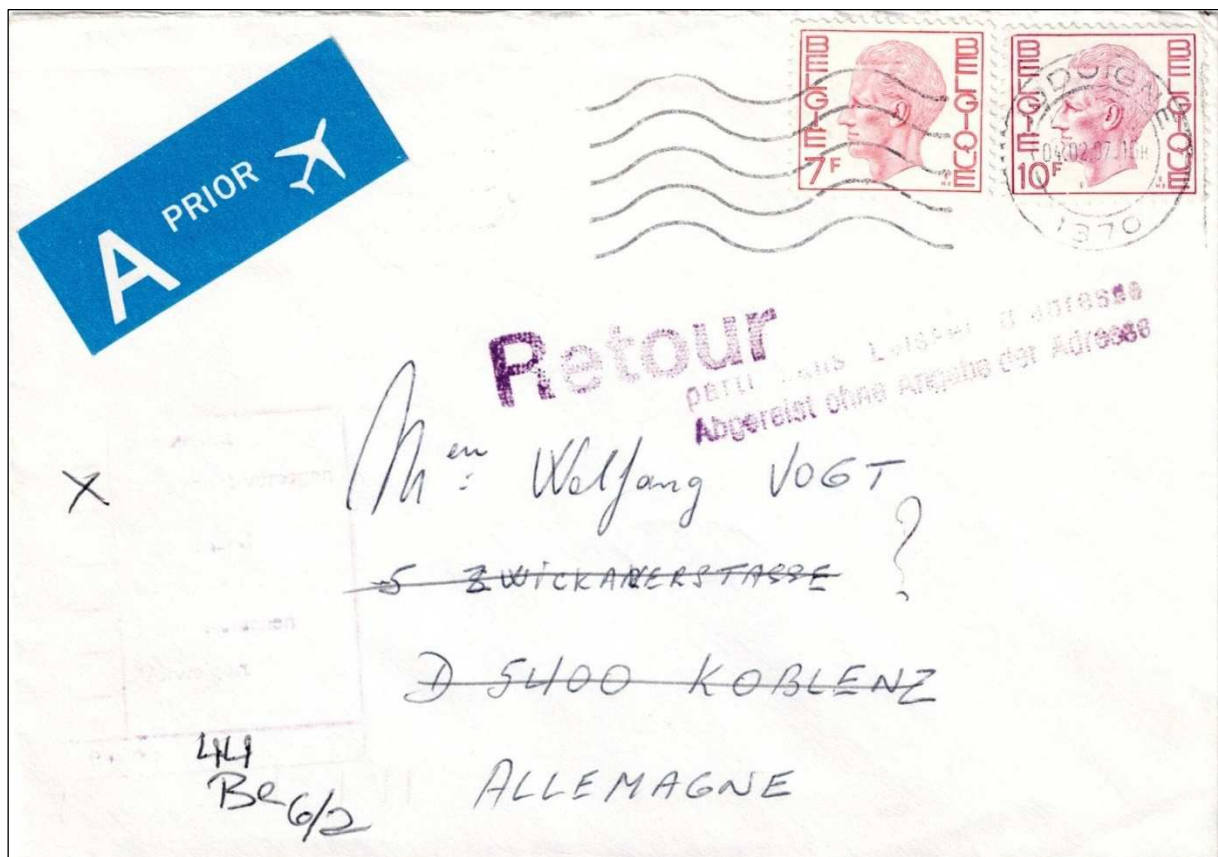 A PRIOR
BELGIE BELGIQUE
7F
BELGIE BELGIQUE
10F
JODOIGNE
04.02.97 16H
1370
Retour
parti sans Laisser d'adresse
Abgereist ohne Angabe der Adresse
Men: Wolfgang VOGT
?
X
5 ZWICKAUERSTASSE
D 5400 KOBLENZ
ALLEMAGNE
44
Be 6/2